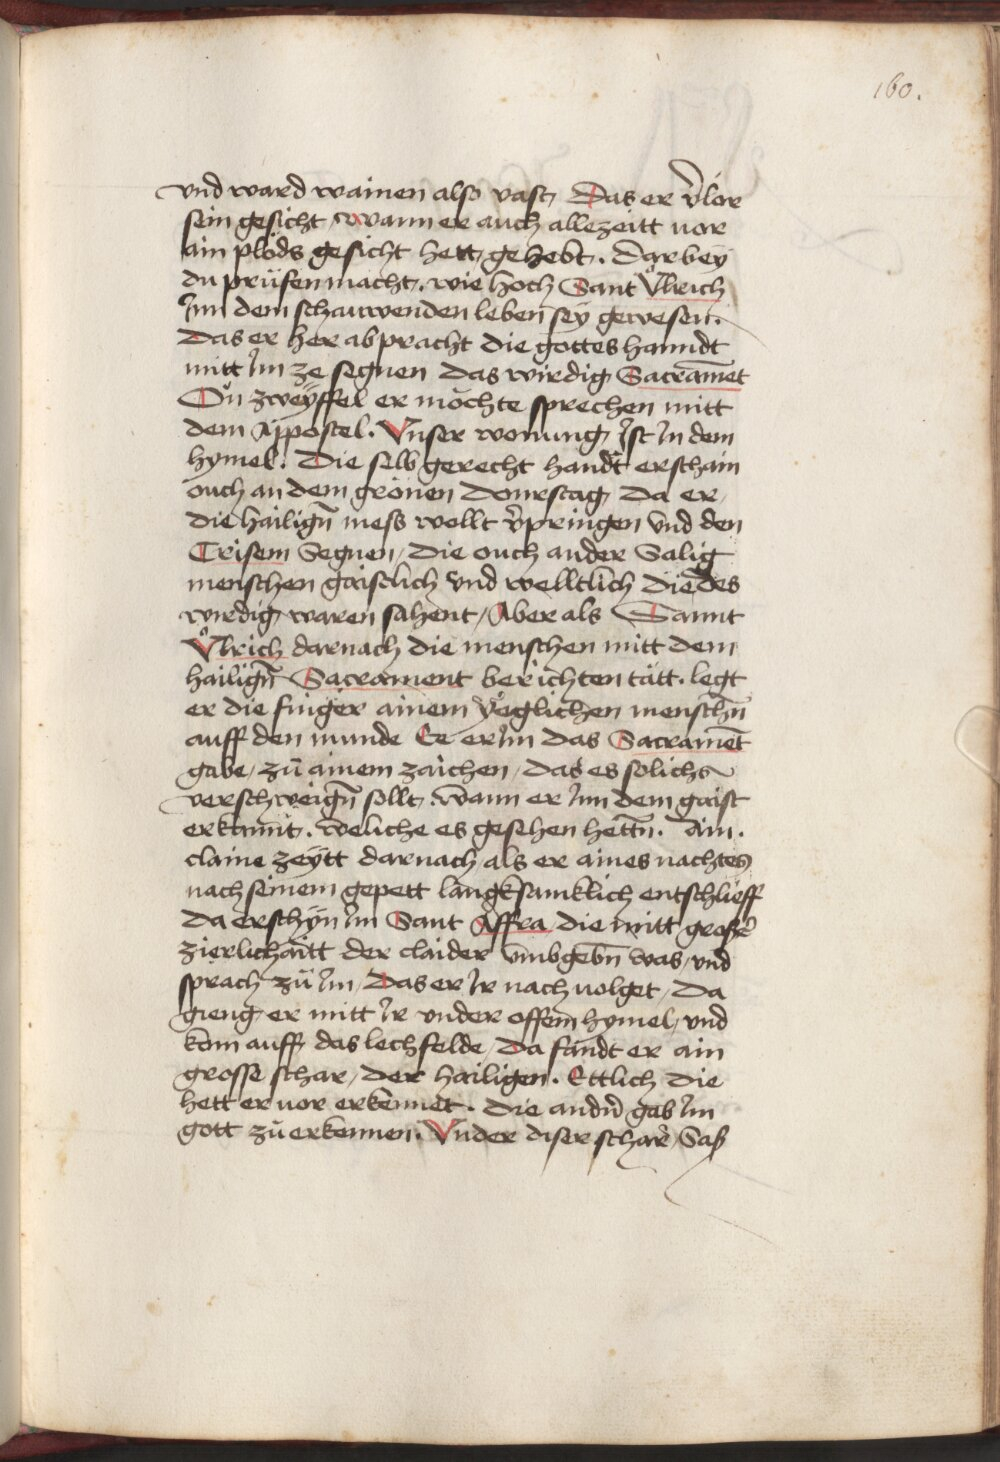 160.
vnd ward wainen also vast, Das er v̄lor
sein gesicht, wann er auch allezeitt vor
ain plöds gesicht hett, gehebt. Dar bey
du prüfen macht. wie hoch Sant Vͦlrich
Jnn dem schauwenden leben sey gewesen.
Das er her ab pracht die gottes hanndt
mitt Jm ze segnen das wirdig Sacramēt
On zweyffel er möchte sprechen mitt
dem Appostel. Vnser wonung, Jst Jn dem
hymel. Die selb gerecht handt erschain
ouch an dem grönen Donrstag, Da er,
die hailign̄ mess wollt v̄pringen vnd den
Crisem Segnen, Die ouch ander Salig
menschen gaistlich vnd welltlich die des
wirdig, waren sahent, Aber als Sannt
Vͦlrich darnach die menschen mitt dem
hailign̄ Sacrament berichten tätt. legt
er die finger ainem yͦeglichen menschn̄
auff den munde Ee er Jm das Sacramēt
gabe, zū ainem zaichen, das es solichs
verschweign̄ sollt. wann er Jnn dem gaist
erkannt. weliche es gesehen hettn̄. Ain.
claine zeytt darnach als er aines nachtes
nach seinem gepett langksamklich entschlieff
Da erschyn Jm Sant Affra die mitt groß̄
zierlichaitt der claider vmbgebn̄ was, vnd
sprach zū Jm, Das er Jr nach uolget, Da
gieng er mitt Jr vnder offem hymel, vnd
kom auff das lechfelde, Da fandt er ain
grosse schar, der hailigen. Ettlich die
hett er vor erkennet. Die andn̄ gab Jm
gott zū erkennen. Vnder diser schar, Saß